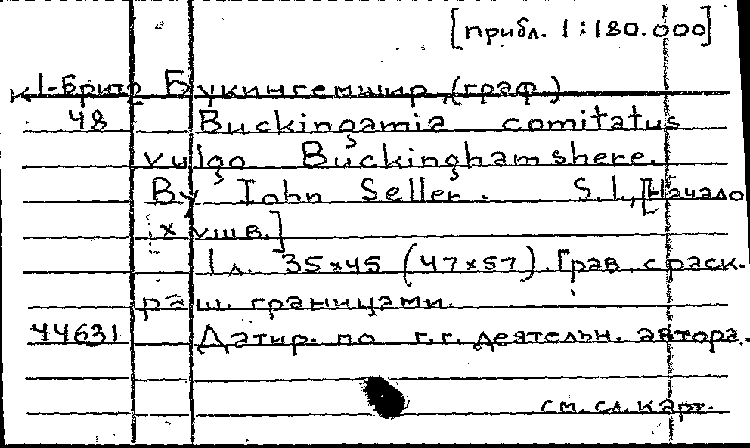 [прибл. 1:180.000]
К1-Брит Букингемшир (граф.)
48 Buckingamia comitatus
vulgo Buckinghamshere.
By Iohn Seller. S.l., [Начало
XVIII в.]
1 л. 35×45 (47×57). Грав. с раск-
раш. границами.
44631 Датир. по г.г. деятельн. автора.
см. сл. карт.